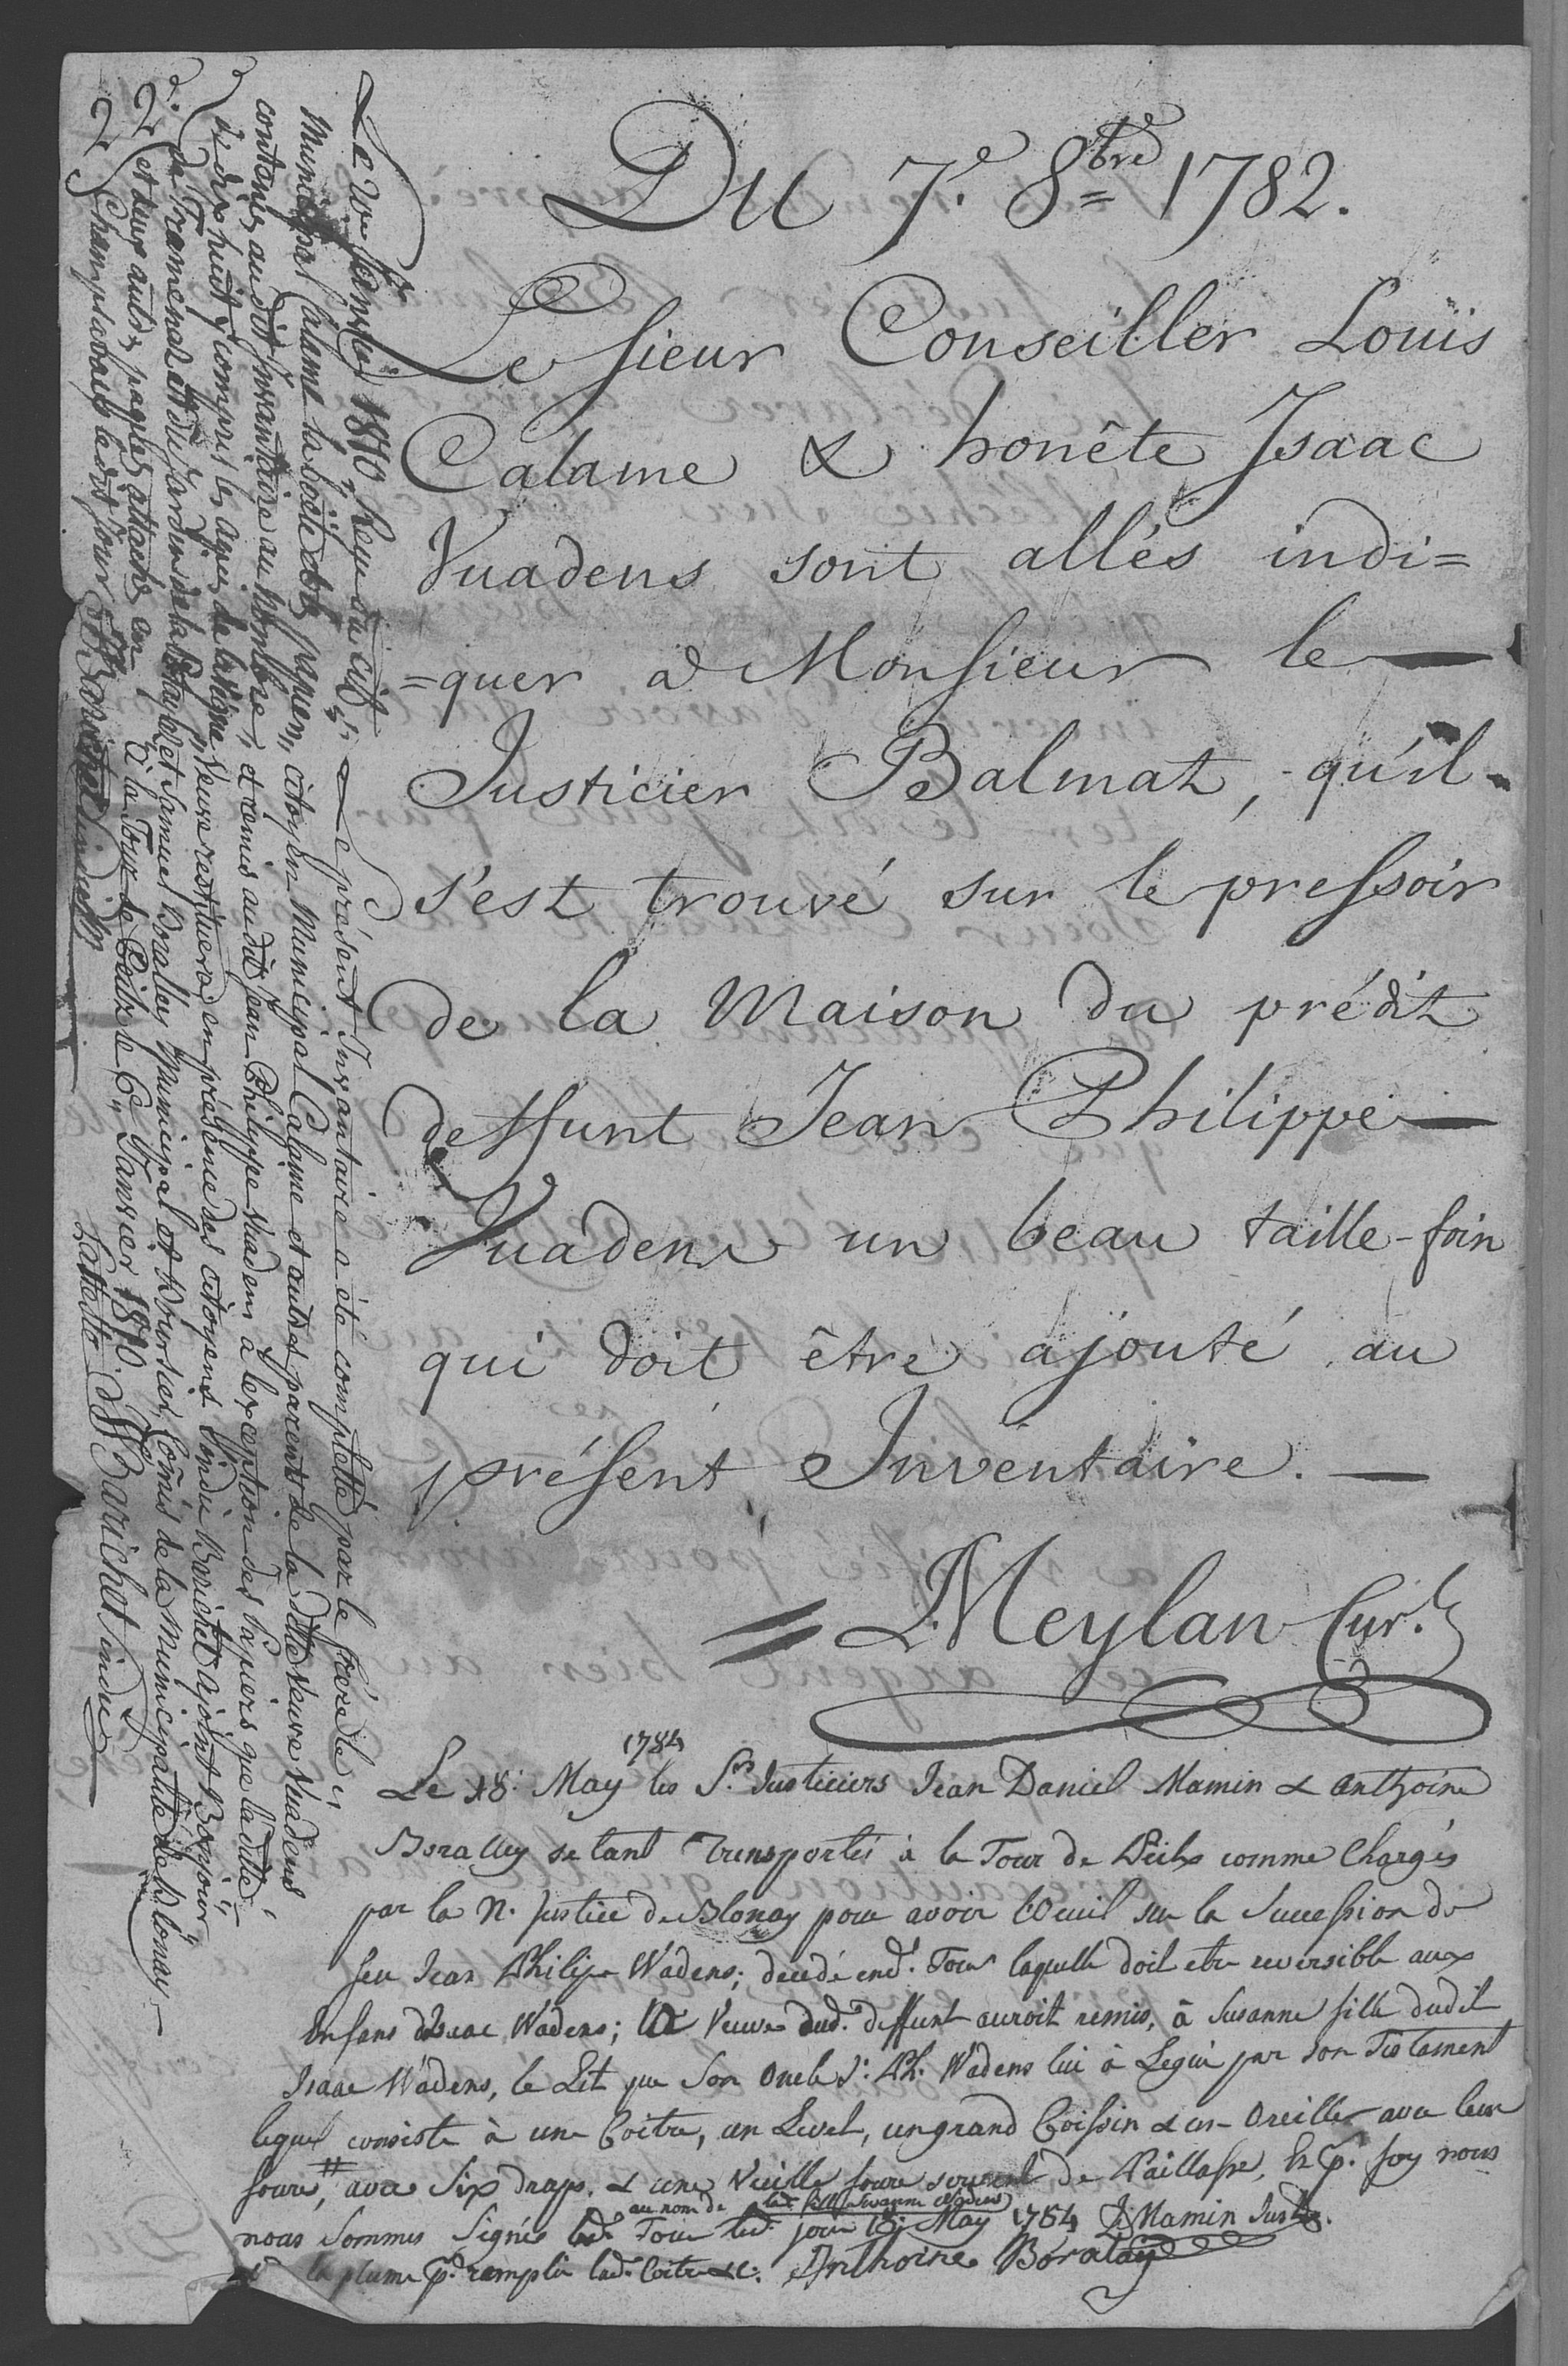 Du 7.e 8=bre 1782.
Le sieur Conseiller Louïs
Calame & honête Isaac
Vuadens sont allés indi=
=quer à Monsieur le
Justicier Balmat, qu'il
s'est trouvé sur le pressoir
de la Maison du prédit
deffunt Jean Philippe
Vuadens un beau taille-foin
qui doit être ajouté au
présent Inventaire.
Meylan Cur.l
1784
Le 18: May les S.rs Justiciers Jean Daniel Mamin & Anthoine
Boralley se tant Transportés à la Tour de Peilz comme Chargés
par la N. Justice de Blonay pour avoir l'Oeuil sur la Succession de
feu Jean Philipe Wadens; decedé end.t Tour laquelle doit etre reversible aux
Enfans d'Isaac Wadens; La Veuve dud. deffunt auroit remis, à Susanne fille dudit
Isaac Wadens, le Lit que Son Oncle J: Ph: Wadens lui à Legué par son Testament
lequel consiste à une Coitre, un Levet, un grand Coissin & un Oreiller avec leur
foure, # avec Six draps. & une Vieille foure servant de Paillasse, En p. foy nous
au nom de lad. fille Susanne Wadens
nous Sommes Signés lad.e Tour led.t jour 18: May 1784 J: Mamin Just.r
# la plume p.r remplir lad. Coitre &c. Anthoine Boralay
Janvier 1810, Reçu du cit.n
Municipal Calame la boëte des papiers, citoyen Municipal Calame et autres parents de la ditte Veuve Vuadens
contenus au dit Invantaire au nombre, et remis au dit Jean Philippe Vuadens à l'exception des Papiers que la ditte
de dix huit y compris les aquis de la vigne Veuve restituera en présence des citoyens Sindic Barichet ajoint Bonjour
du Tramenaz et du Jardin de la et Samuel Boralley Municipal et Boursier, Comis de la Municipalité de Blonay.
et deux autres papiers attachés en à la Tour de Peilz le 6, Janvier 1810.
ledit jour Barichet Sindic
Le présent Invantaire a été complettée par le frère le
L'atteste Barichet Sindic